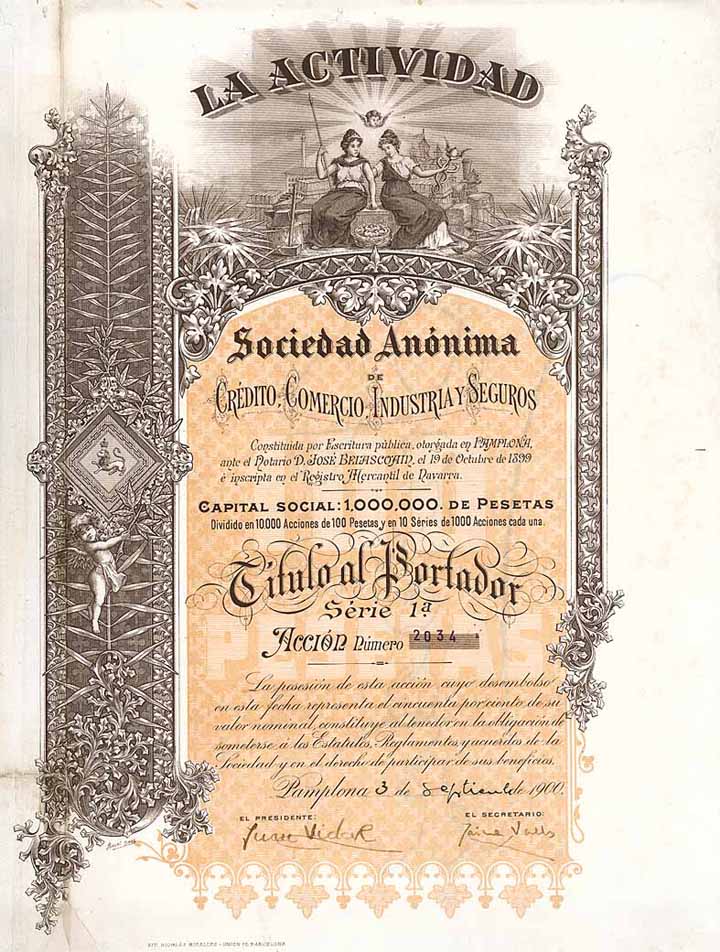 LA ACTIVIDAD
Sociedad Anónima
DE
CRÉDITO, COMERCIO, INDUSTRIA Y SEGUROS
Constituida por Escritura pública, otorgada en PAMPLONA,
ante el Notario D. JOSÉ BELASCOAIN, el 19 de Octubre de 1899
é inscripta en el Registro Mercantil de Navarra.
CAPITAL SOCIAL: 1.000.000. DE PESETAS
Dividido en 10.000 Acciones de 100 Pesetas y en 10 Séries de 1000 Acciones cada una.
Título al Portador
Série 1ª
ACCIÓN Número 2034
PESETAS
La posesión de esta acción cuyo desembolso
en esta fecha representa el cincuenta por ciento de su
valor nominal, constituye al tenedor en la obligación de
someterse á los Estatutos, Reglamentos y acuerdos de la
Sociedad y en el derecho de participar de sus beneficios.
Pamplona 3 de Septiembre de 1900.
EL PRESIDENTE: EL SECRETARIO:
Juan Vidal Jaime Valls
BARCELONA